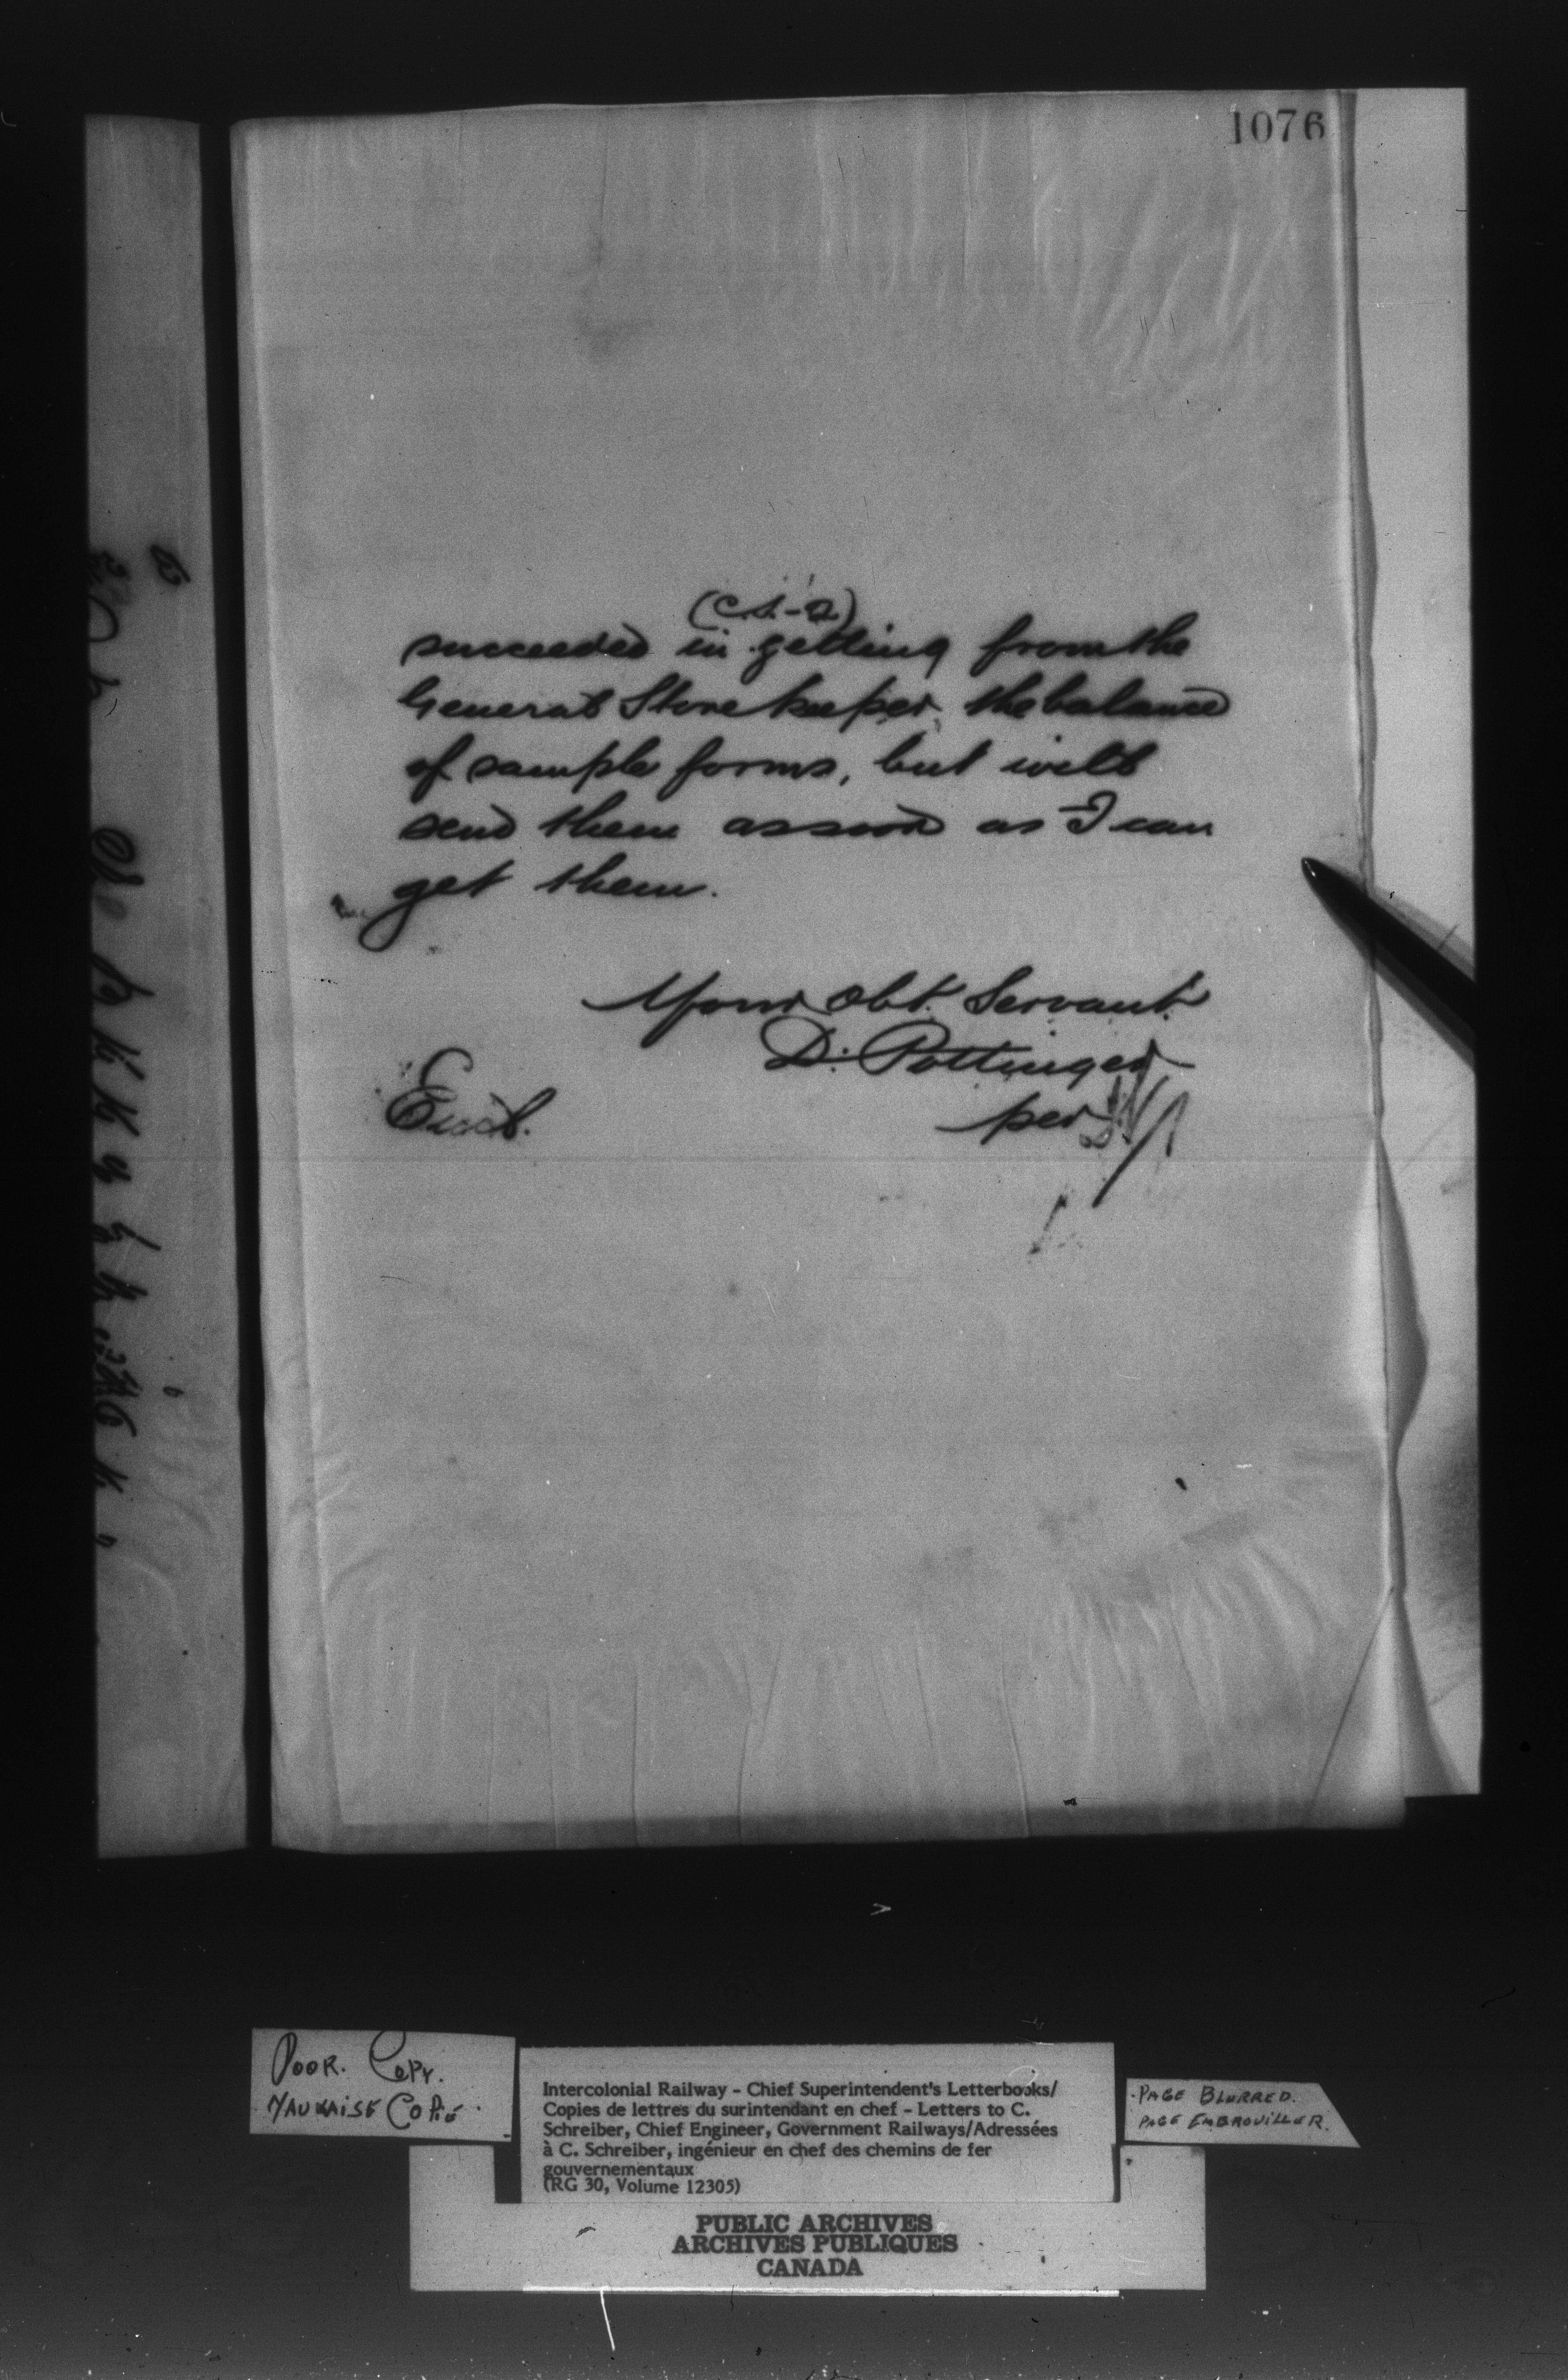 1076
(C.S.-2)
succeeded in getting from the
General Storekeeper the balance
of sample forms, but will
send them as soon as I can
get them.
Your Obt. Servant.
D. Pottinger
per
Encl.
POOR. COPY.
MAUVAISE COPIE.
Intercolonial Railway - Chief Superintendent's Letterbooks/
Copies de lettres du surintendant en chef - Letters to C.
Schreiber, Chief Engineer, Government Railways/Adressées
à C. Schreiber, ingénieur en chef des chemins de fer
gouvernementaux
(RG 30, Volume 12305)
PAGE BLURRED.
PAGE EMBROUILLER.
PUBLIC ARCHIVES
ARCHIVES PUBLIQUES
CANADA